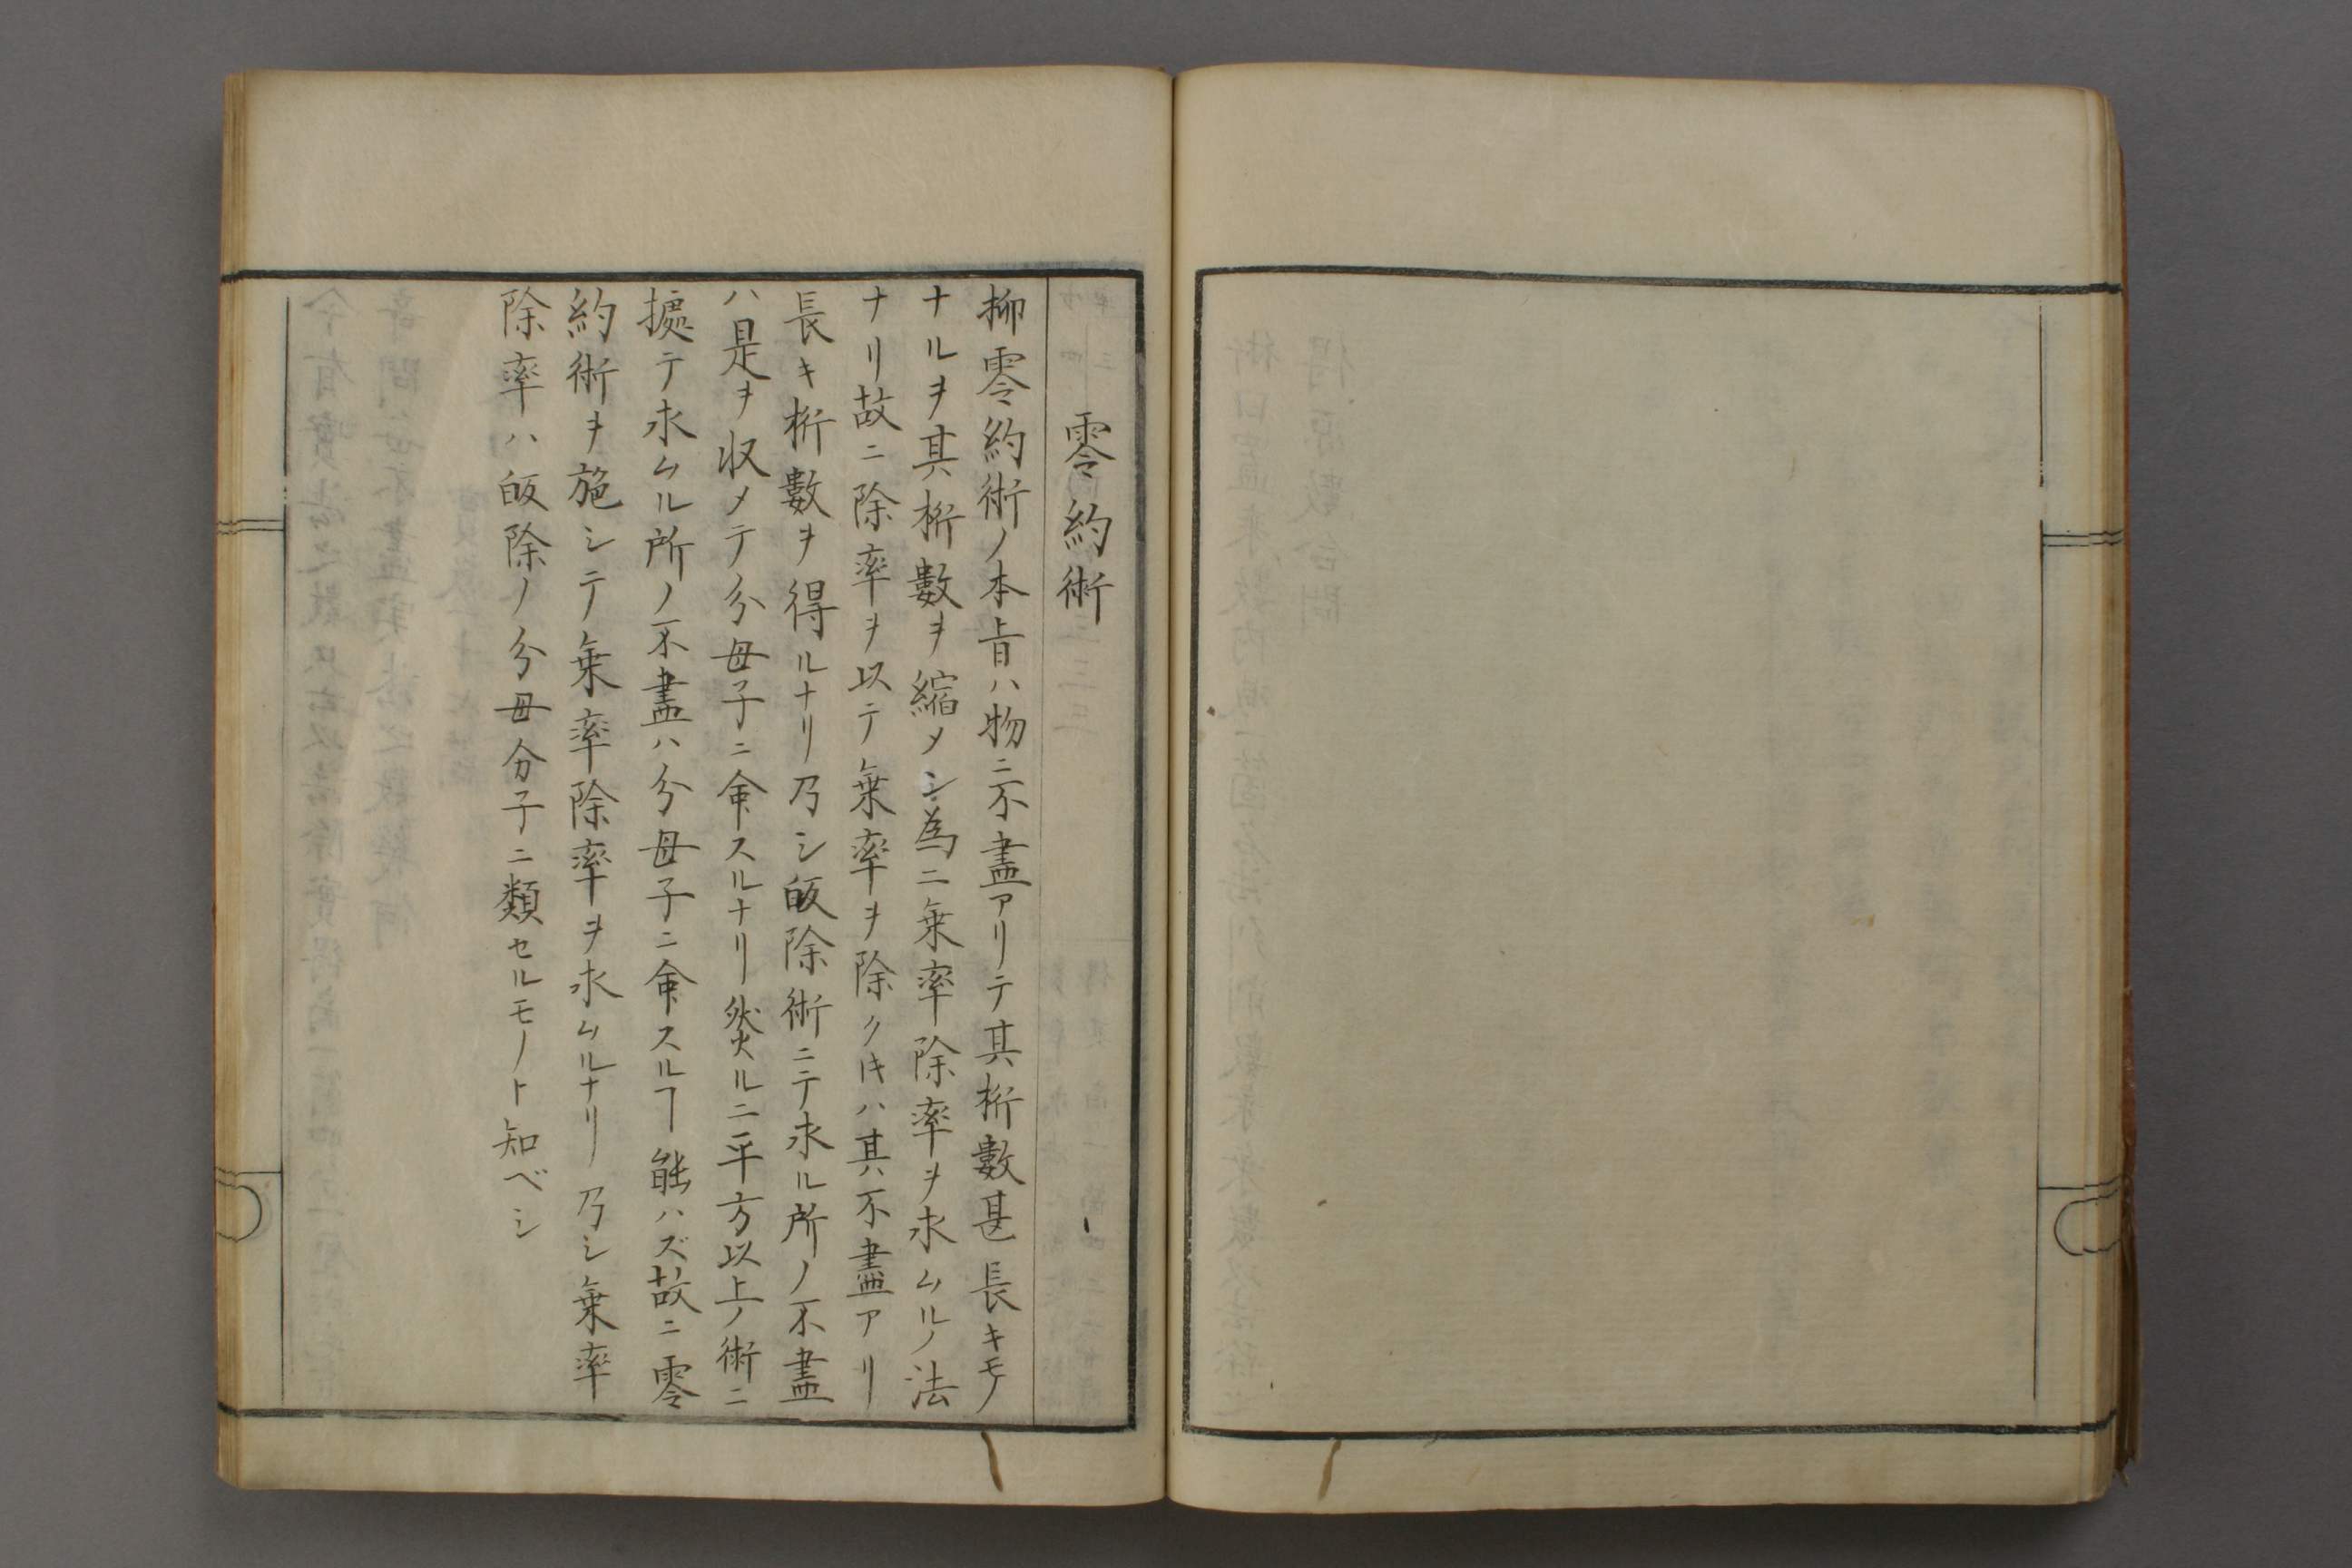 零約術
抑零約術ノ本旨ハ物ニ不盡アリテ其桁數甚長キモノ
ナルヲ其桁數ヲ縮メン為ニ乗率除率ヲ求ムルノ法
ナリ故ニ除率ヲ以テ乗率ヲ除クキハ其不盡アリ
長キ桁數ヲ得ルナリ乃シ皈除術ニテ求ル所ノ不盡
ハ是ヲ収メテ分母子ニ命スルナリ然ルニ平方以上ノ術ニ
據テ求ムル所ノ不盡ハ分母子ニ命スルヿ能ハズ故ニ零
約術ヲ施シテ乗率除率ヲ求ムルナリ乃シ乗率
除率ハ皈除ノ分母分子ニ類セルモノト知ベシ